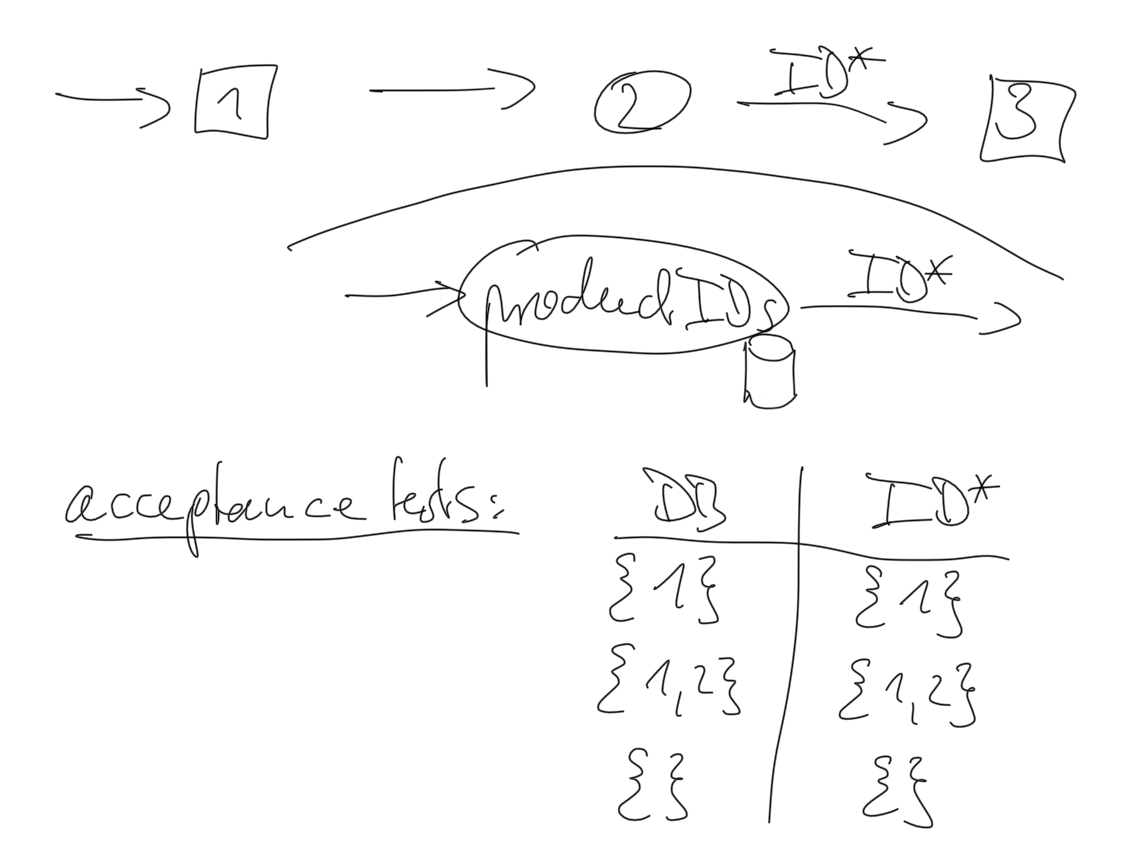 1 2 ID* 3
productIDs ID*
acceptance tests: DB ID*
{1} {1}
{1,2} {1,2}
{} {}